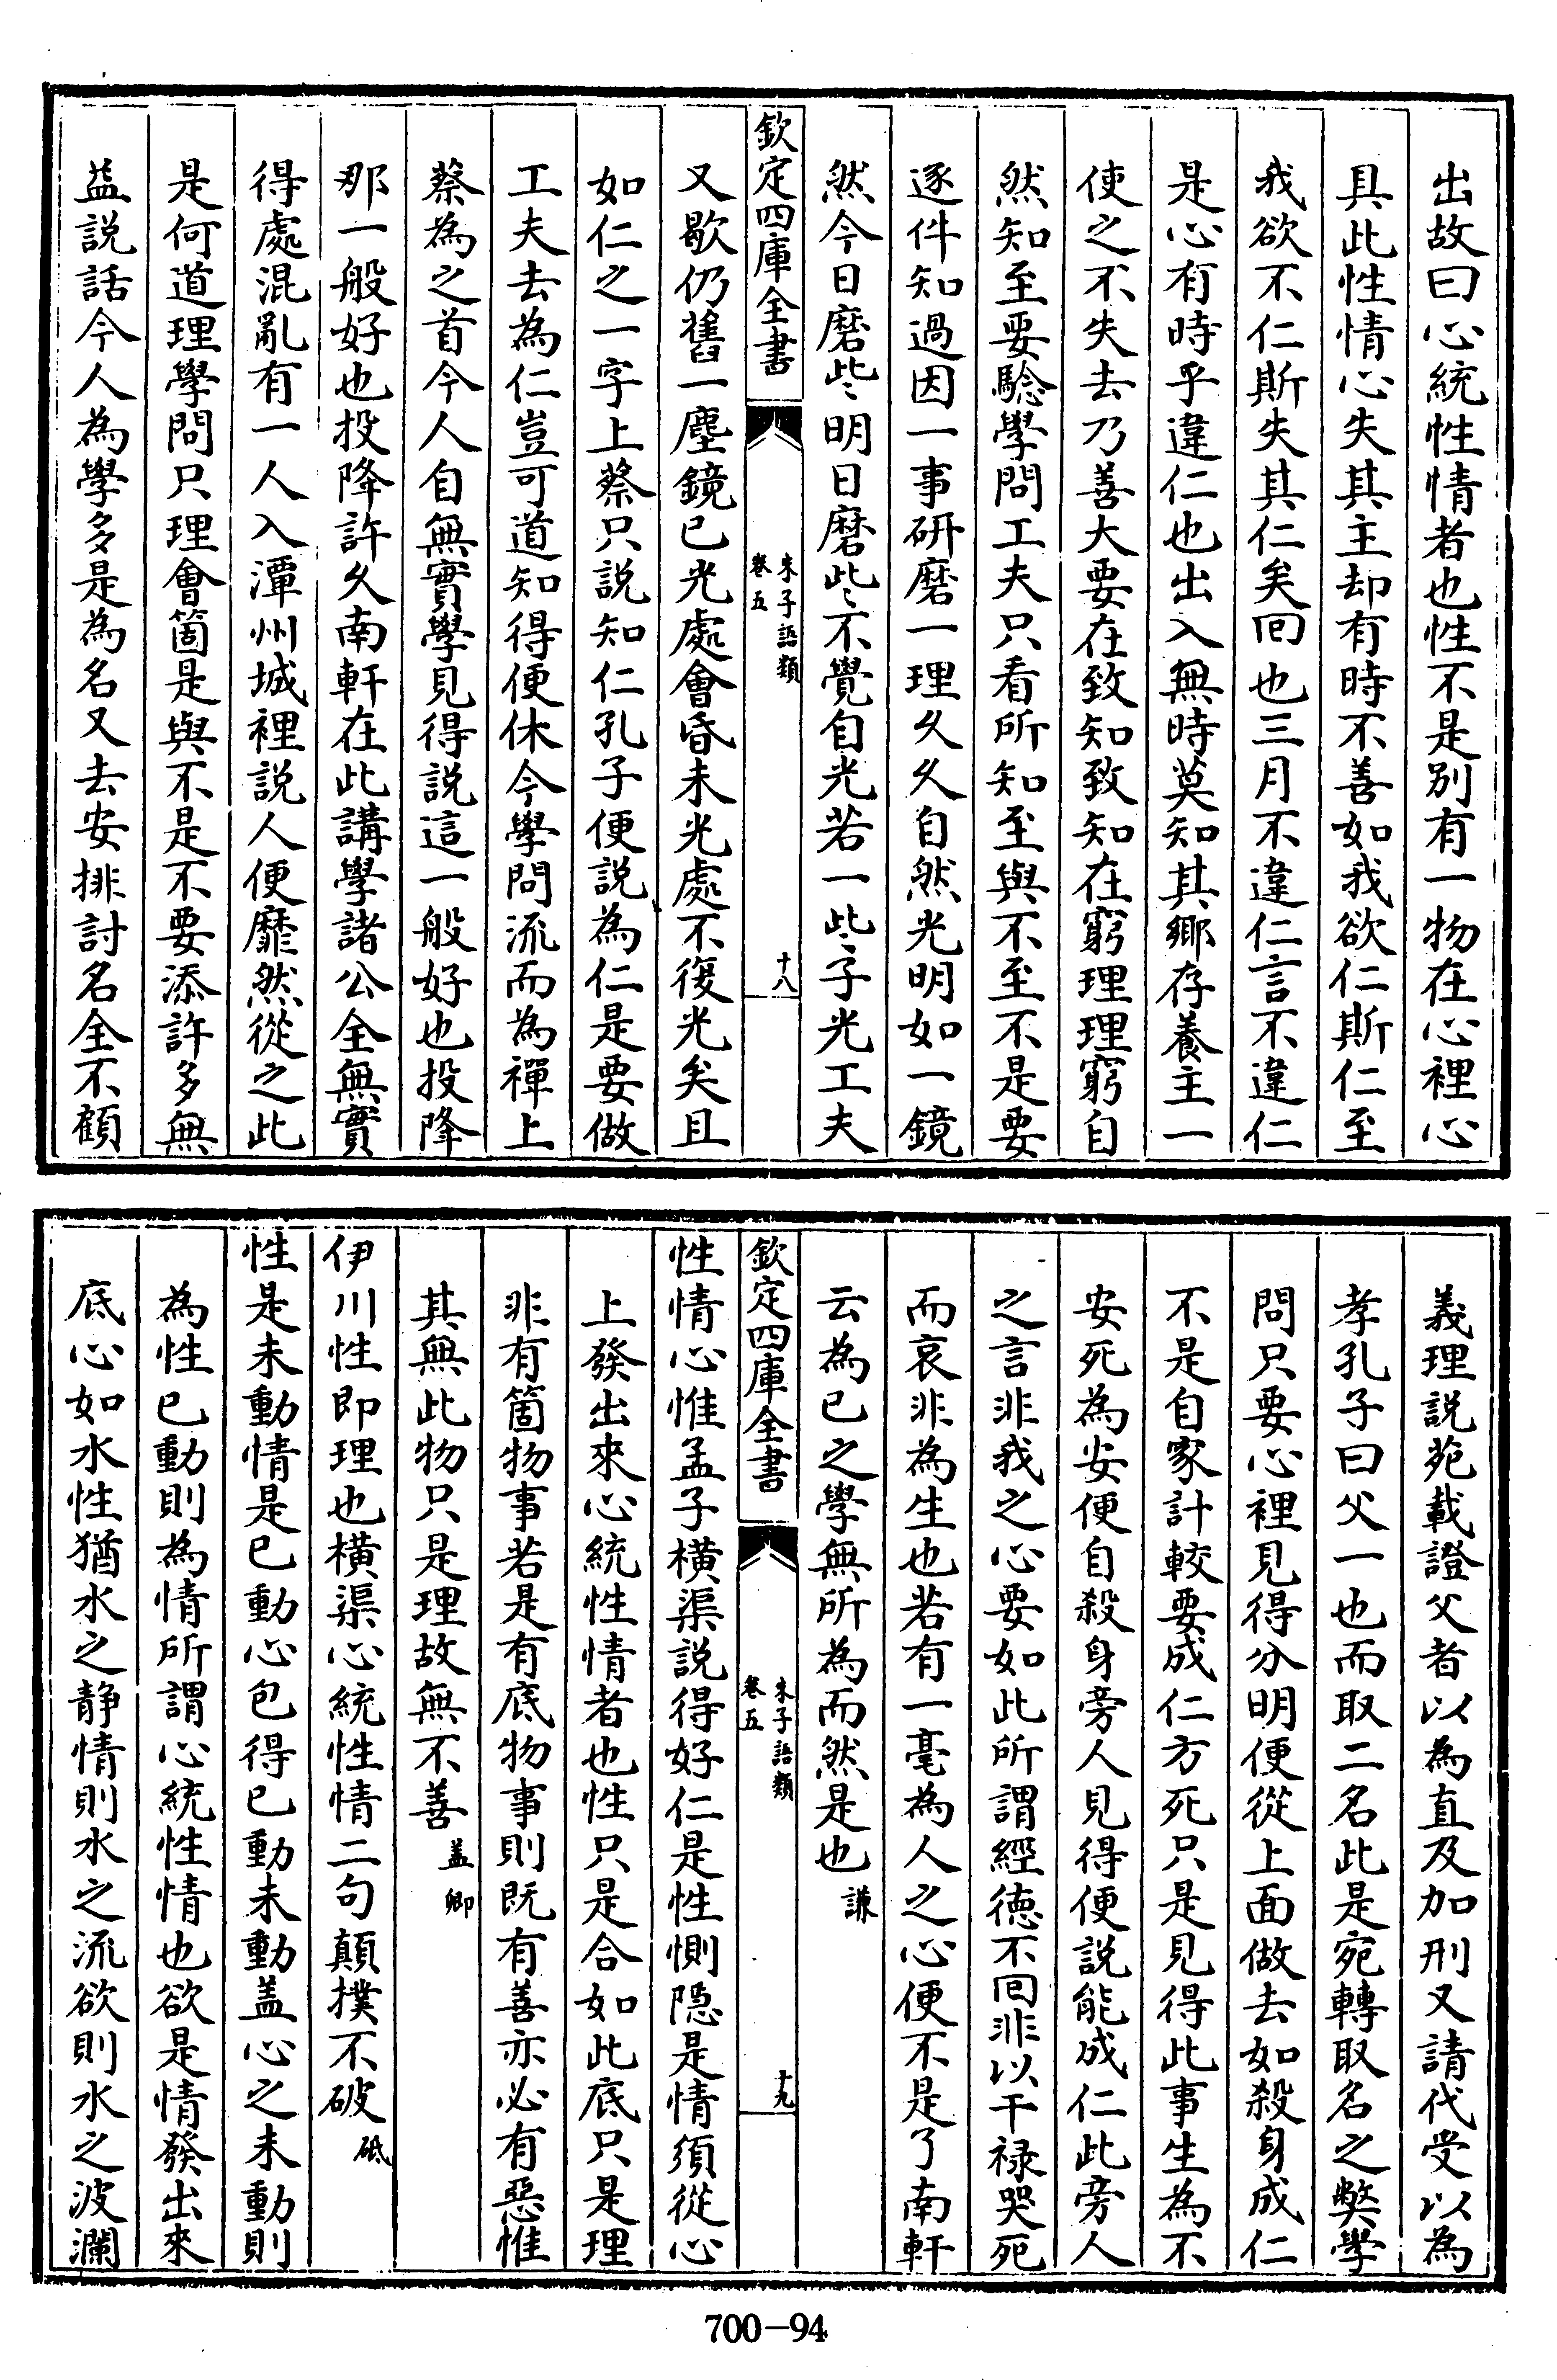 出故曰心統性情者也性不是别有一物在心裡心
具此性情心失其主却有時不善如我欲仁斯仁至
我欲不仁斯失其仁矣囘也三月不違仁言不違仁
是心有時乎違仁也出入無時莫知其鄉存養主一
使之不失去乃善大要在致知致知在窮理理窮自
然知至要驗學問工夫只看所知至與不至不是要
逐件知過因一事研磨一理久久自然光明如一鏡
然今日磨些明日磨些不覺自光若一些子光工夫
欽定四庫全書
朱子語類
卷五
十八
又歇仍舊一塵鏡已光處會昏未光處不復光矣且
如仁之一字上蔡只説知仁孔子便説為仁是要做
工夫去為仁豈可道知得便休今學問流而為禪上
蔡為之首今人自無實學見得説這一般好也投降
那一般好也投降許久南軒在此講學諸公全無實
得處混亂有一人入潭州城裡説人便靡然從之此
是何道理學問只理會箇是與不是不要添許多無
益説話今人為學多是為名又去安排討名全不顧
義理説苑載證父者以為直及加刑又請代受以為
孝孔子曰父一也而取二名此是宛轉取名之弊學
問只要心裡見得分明便從上面做去如殺身成仁
不是自家計較要成仁方死只是見得此事生為不
安死為安便自殺身旁人見得便説能成仁此旁人
之言非我之心要如此所謂經徳不囘非以干禄哭死
而哀非為生也若有一毫為人之心便不是了南軒
云為已之學無所為而然是也謙
欽定四庫全書
朱子語類
卷五
十九
性情心惟孟子横渠説得好仁是性惻隠是情須從心
上發出來心統性情者也性只是合如此底只是理
非有箇物事若是有底物事則既有善亦必有惡惟
其無此物只是理故無不善盖卿
伊川性即理也横渠心統性情二句顛撲不破砥
性是未動情是已動心包得已動未動盖心之未動則
為性已動則為情所謂心統性情也欲是情發出來
底心如水性猶水之静情則水之流欲則水之波瀾
700-94